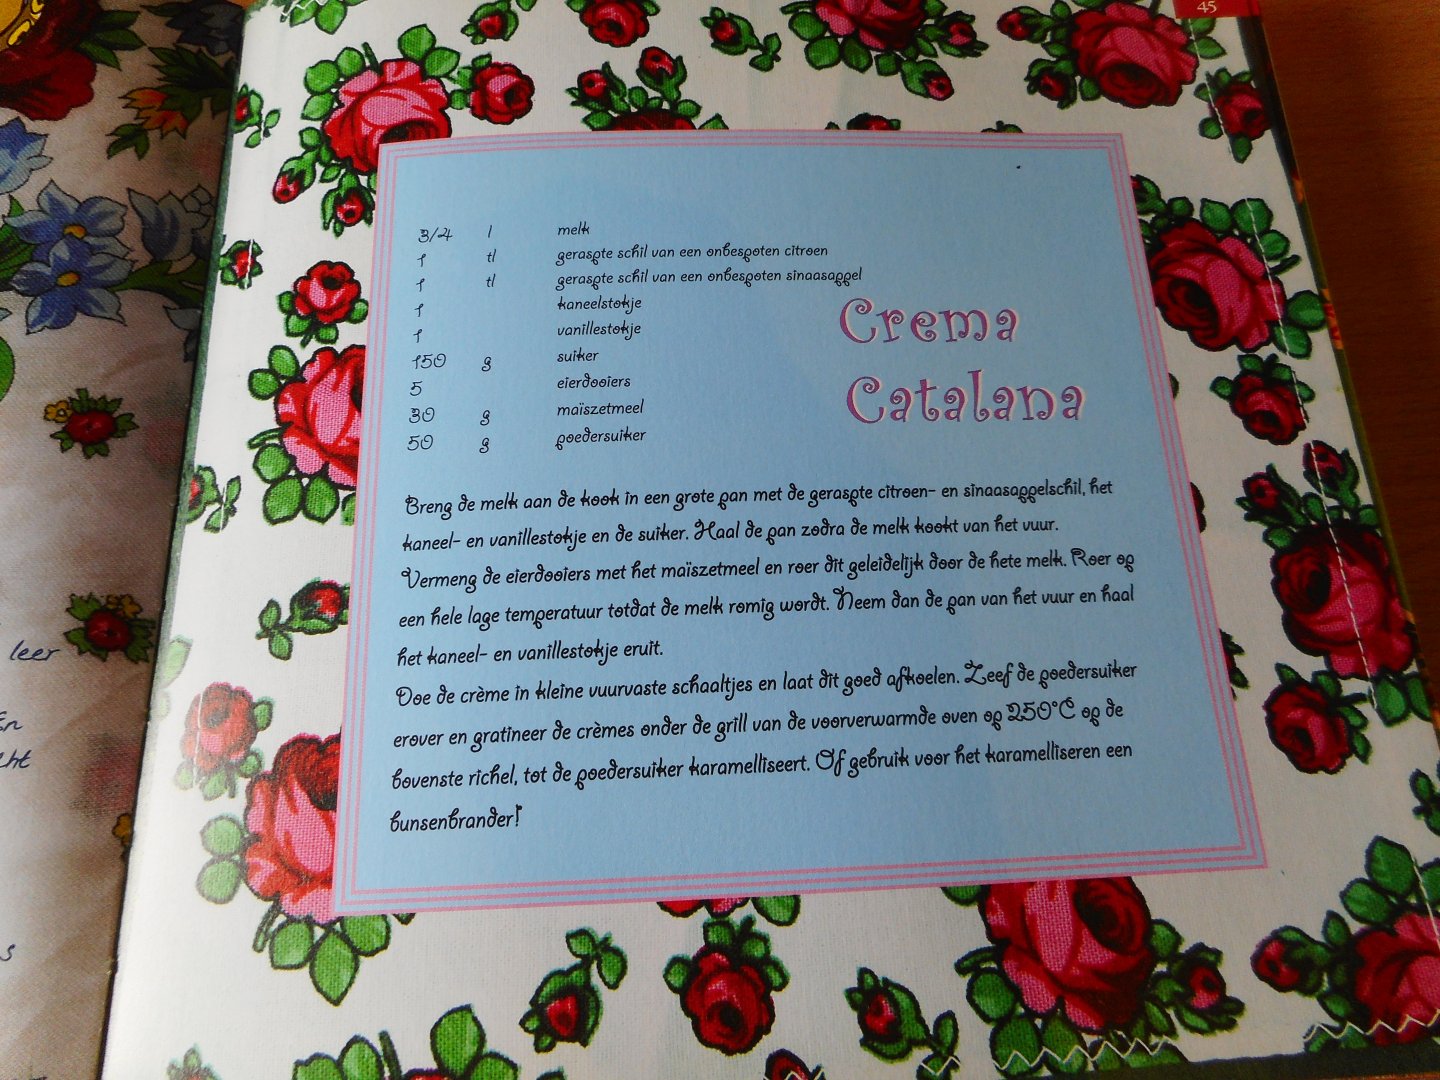 45
3/4 l melk
1 tl geraspte schil van een onbespoten citroen
1 tl geraspte schil van een onbespoten sinaasappel
1 kaneelstokje
1 vanillestokje
150 g suiker
5 eierdooiers
30 g maïszetmeel
50 g poedersuiker
Crema
Catalana
Breng de melk aan de kook in een grote pan met de geraspte citroen- en sinaasappelschil, het
kaneel- en vanillestokje en de suiker. Haal de pan zodra de melk kookt van het vuur.
Vermeng de eierdooiers met het maïszetmeel en roer dit geleidelijk door de hete melk. Roer op
een hele lage temperatuur totdat de melk romig wordt. Neem dan de pan van het vuur en haal
het kaneel- en vanillestokje eruit.
Doe de crème in kleine vuurvaste schaaltjes en laat dit goed afkoelen. Zeef de poedersuiker
erover en gratineer de crèmes onder de grill van de voorverwarmde oven op 250°C op de
bovenste richel, tot de poedersuiker karamelliseert. Of gebruik voor het karamelliseren een
bunsenbrander!
leer